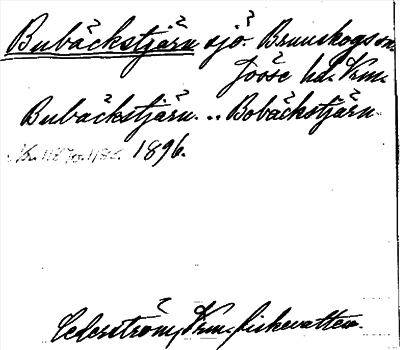 Bubäckstjärn sjö. Brunskogs sn.
Jösse hd. Vrm.
Bubäckstjärn. .. Bobäckstjärn.
1896.
Cederström, Vrm. fiskevatten.